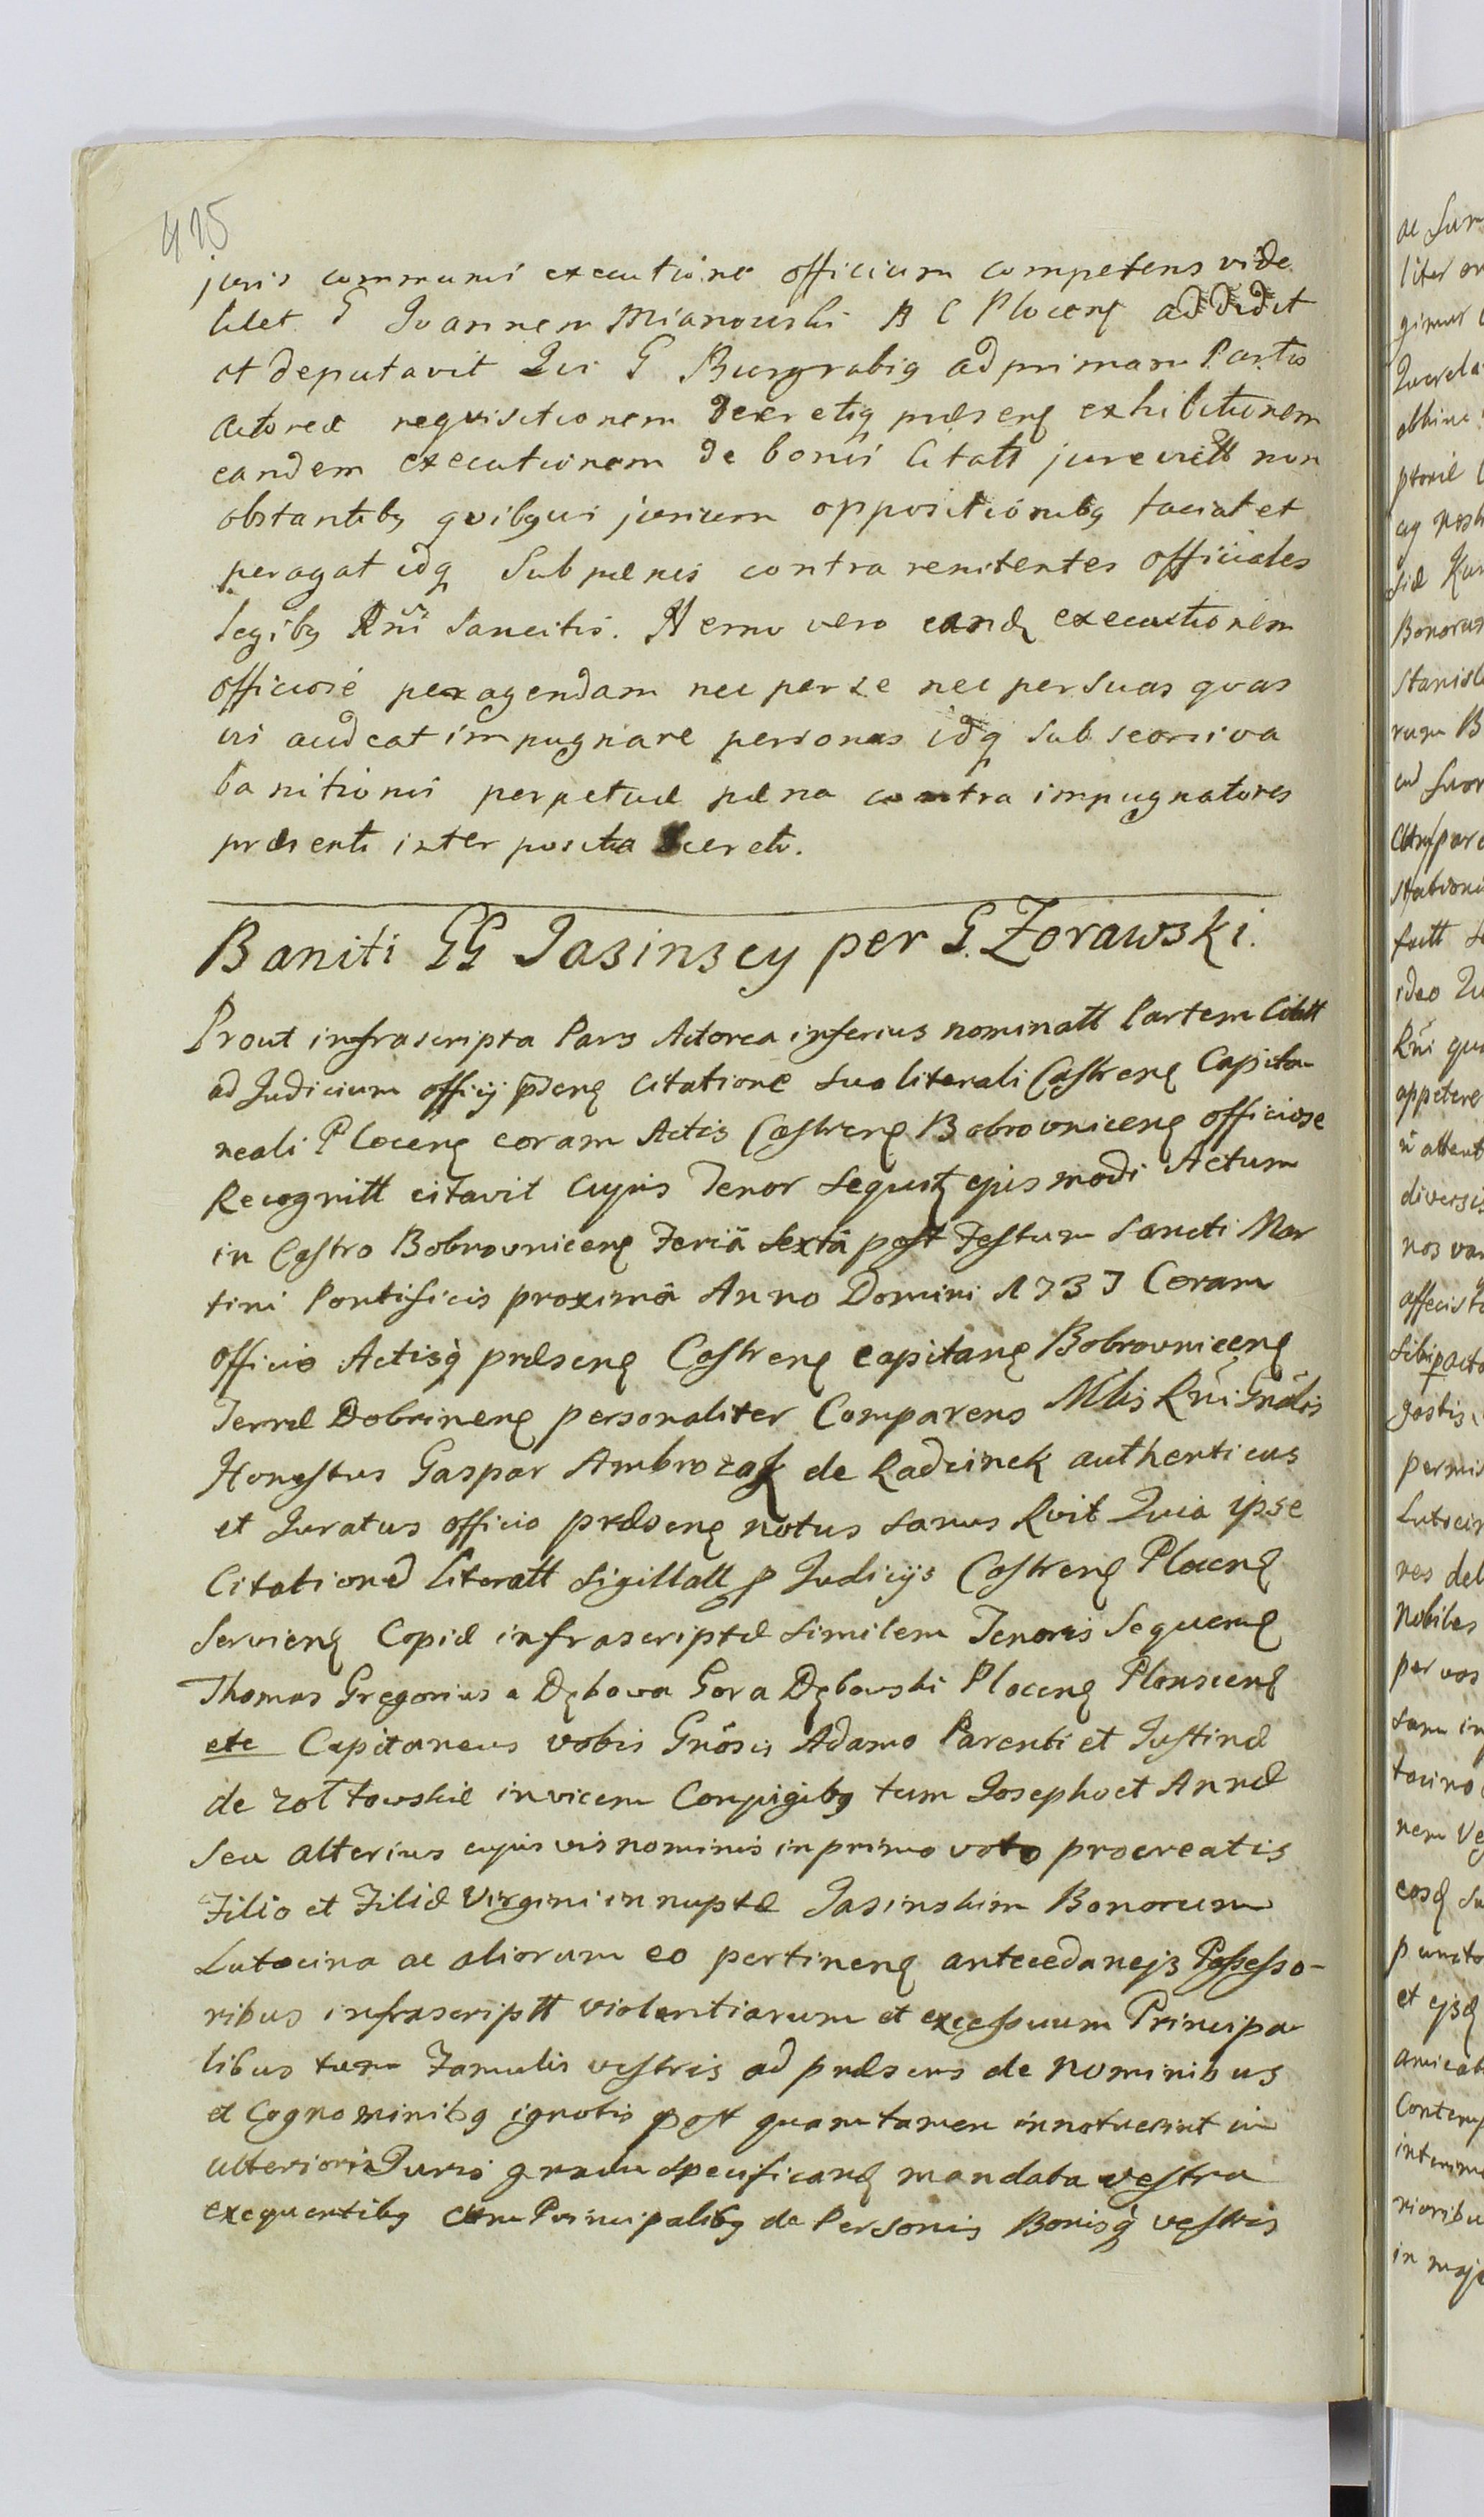 415
juris communis executione officium competens vide
licet G Joannem Mianowski B C Plocenꝫ addidit
et deputavit Qui G Burgrabiꝯ ad primam Partis
Actoreæ requisitionem decretiqꝫ præsenꝫ exhibitionem
eandem executionem de bonis Citatt jurevictt non
obstantibꝫ quibꝫvis jurium oppositionibꝫ faciat et
peragat idqꝫ Sub pænis contra renitentes officiales
legibꝫ Rñi Sancitis. Nemo vero eandꝫ executionem
officiose peragendam nec per se nec per Suas quas
vis audeat impugnare personas idqꝫ Sub seorsiva
banitionis perpetuæ pæna contra impugnatores
præsenti interposita decreto.
Baniti GG Jasinscy per G. Zorawski.
Prout infrascripta Pars Actorea inferius nominatt Partem Citatt
ad Judicium officij p̄denꝫ Citatione Sua literali Castrenꝫ Capita-
neali Plocenꝫ coram Actis Castrenꝫ Bobrovnicenꝫ officiose
Recognitt citavit Cujus Tenor Sequitꝫ ejusmodi Actum
in Castro Bobrovnicenꝫ Feriâ Sextâ post Festum Sancti Mar
tini Pontificis proximâ Anno Domini 1737 Coram
officio Actisq̀ præsenꝫ Castrenꝫ Capitanꝫ Bobrovnicenꝫ
Terræ Dobrinenꝫ personaliter Comparens Mlis Rñi Gnälis
Honestus Gaspar Ambrozak de Radcinek authenticus
et Juratus officio præsenꝫ notus Sanus Rvit Quia ipse
Citationeꝫ literatt Sigillatt p Judicijs Castrenꝫ Plocenꝫ
Servienꝫ Copiæ infrascriptæ Similem Tenoris Sequenꝫ
Thomas Gregorius a Dębowa Gora Dębowski Plocenꝫ Plonscenꝫ
etc Capitaneus vobis Gnösis Adamo Parenti et Justinæ
de zołtowskie invicem Conjugibꝫ tum Josepho et Annæ
Seu alterius cujusvis nominis in primo voto procreatis
Filio et Filiæ Virgini innuptæ Jasinskim Bonorum
Lutocina ac aliorum eo pertinenꝫ antecedanejs Possesso-
ribus infrascriptt violentiarum et excessuum Principa-
libus tum Famulis vestris ad præsens de Nominibus
et Cognominibꝫ ignotis post quam tamen innotuerint in
ulterioris Juris gradu specificanꝫ mandata vestra
exequentibꝫ cum Principalibꝫ de Personis Bonisq̀ vestris
ac Sum
liter or
gimur
Querela
abhinc
ptorie
Bonorum
Stanisl